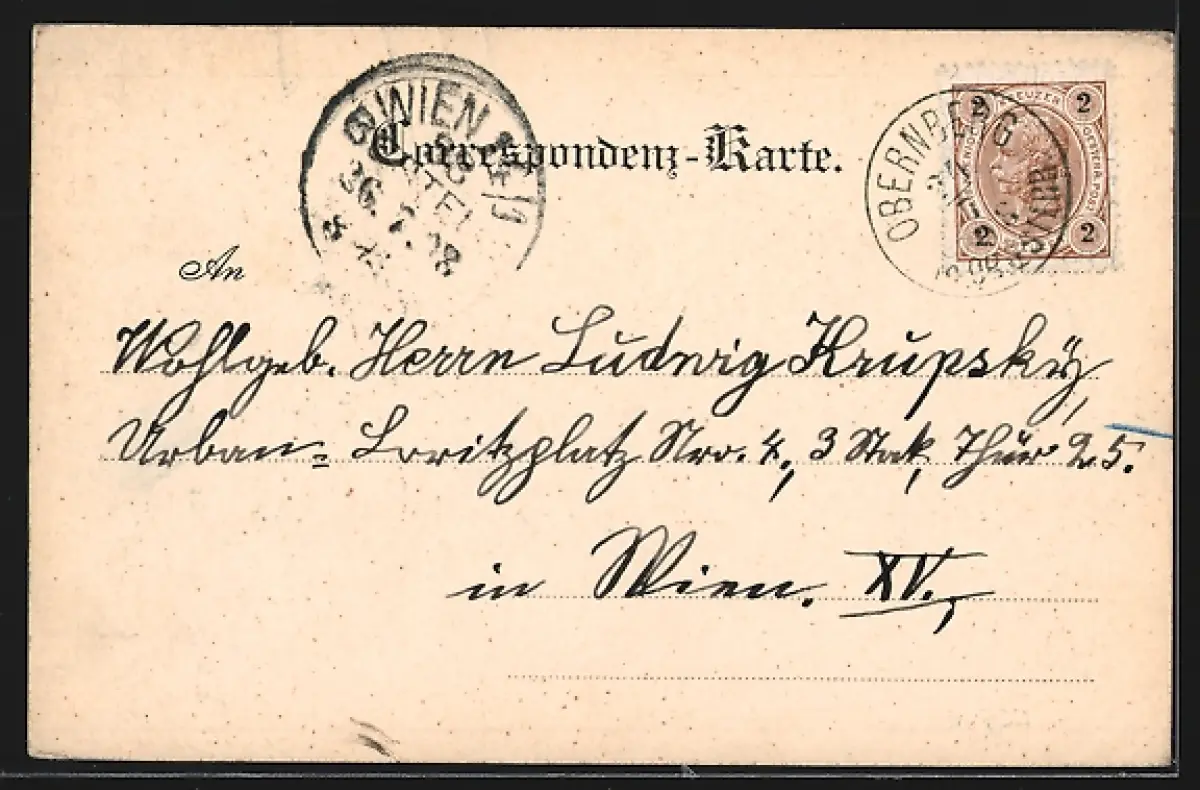 Correspondenz-Karte.
WIEN
OBERNBERG
2 KREUZER 2
2 2
An
Wohlgeb. Herrn Ludwig Krupský,
Urban=Loritzplatz Nro. 4, 3 Stok, Thür 25.
in Wien. XV.,